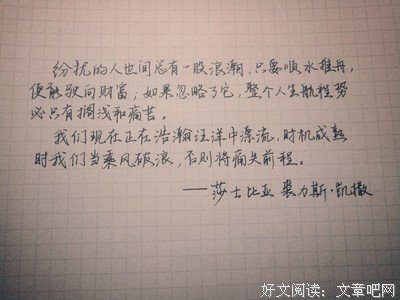 纷扰的人世间总有一股浪潮，只要顺水推舟，
便能驶向财富；如果忽略了它，整个人生航程势
必只有搁浅和痛苦。
我们现在正在浩瀚汪洋中漂流，时机成熟
时我们当乘风破浪，否则将痛失前程。
——莎士比亚 裘力斯·凯撒
好文阅读：文章吧网